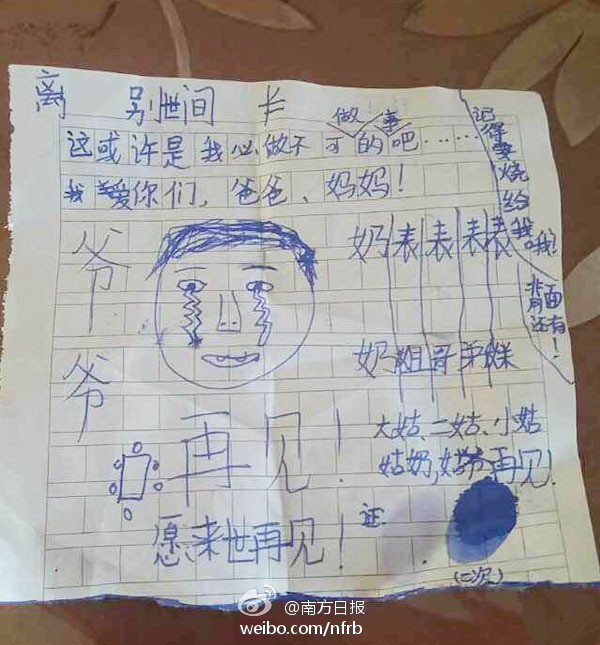 离 别世间
做事
这或许是我必做不可的吧……
我爱你们，爸爸、妈妈！
记得要烧给我哦！
背面还有！
爷爷
奶奶
表姐
表哥
表弟
表妹
大姑、二姑、小姑
姑奶，姑爷再见！
再见！
愿来世再见！
证
(二次)
@南方日报
weibo.com/nfrb